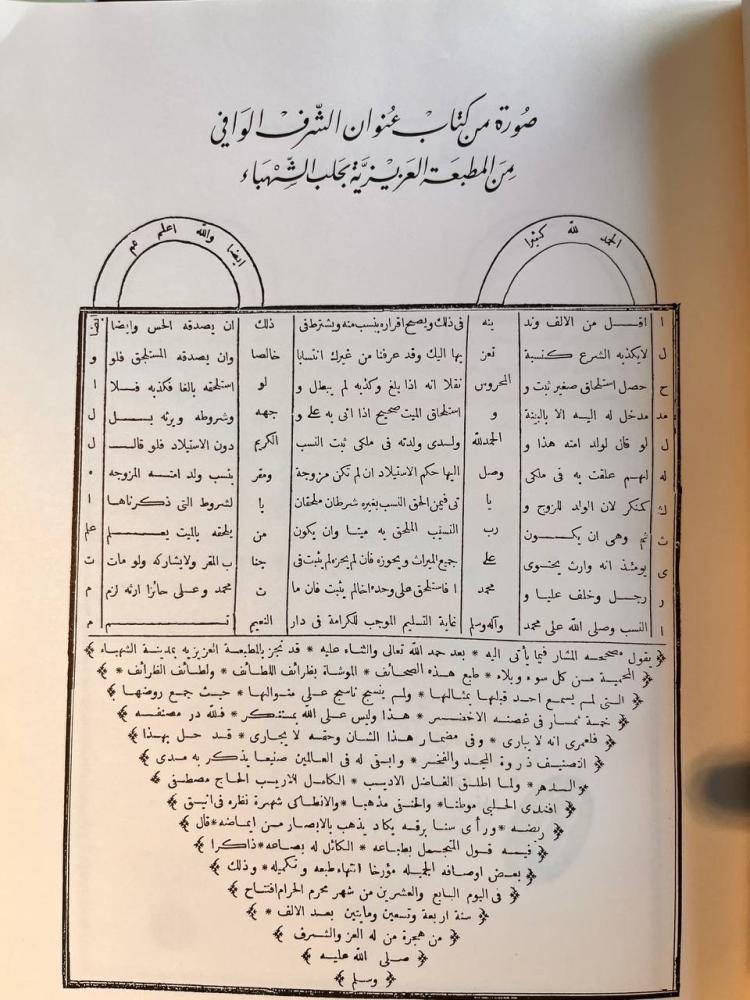 صورة من كتاب عنوان الشرف الوافي
من المطبعة العزيزية بحلب الشهباء
الحمد لله كثيرا
ايضا والله اعلم مم
ا اقل من الالف وند ينه فى ذلك ويصح اقراره بنسب منه ويشترط فى ذلك ان يصدقه الحس وايضا ايضا
ل لايكذبه الشرع كنسبة تعز يها اليك وقد عرفنا من غيرك انتسابا خالصا وان يصدقه المستلحق فلو و
ح حصل استلحاق صغير ثبت و المحروس نقلا انه اذا بلغ وكذبه لم يبطل و لو استلحقه بالغا فكذبه فلا ا
مد مدخل له اليه الا بالبينة و استلحاق الميت صحيح اذا اتى به على و جهه وشروطه ويرثه بل ل
ل لو قال لولد امته هذا و الحمدلله ولدى ولدته فى ملكى ثبت النسب الكريم دون الاستيلاد فلو قال ل
له لهم علقت به فى ملكى وصل اليها حكم الاستيلاد ان لم تكن مزوجة ومقر بنسب ولد امته المزوجه ه
ك كمنكر لان الولد للزوج و يا تى فيمن الحق النسب بغيره شرطان ملحقان يا لشروط التى ذكرناها ا
ث ثم وهى ان يكون رب النسيب الملحق به ميتا وان يكون من يلحقه بالميت بعلم علم
ى يومئذ انه وارث يحتوى على جميع الميراث ويحوزه فان لم يحزه لم يثبت فى جنا ب المقر ولايشاركه ولو مات ت
ر رجل وخلف عليا و محمد ا فاستلحق على وحده اخالم يثبت فان ما ت محمد وعلى حائزا ارثه لزم م
ا النسب وصلى الله على محمد وآله وسلم غاية التسليم الموجب للكرامة فى دار النعيم تم م
يقول مصححه المشار فيما يأتى اليه * بعد حمد الله تعالى والثناء عليه * قد نجز بالمطبعة العزيزيه بمدينة الشهباء
المحمية من كل سوء وبلاء * طبع هذه الصحائف * الموشاة بغرائف اللطائف * ولطائف الظرائف *
التى لم يسمع احد قبلها بمثالها * ولم ينسج ناسج على منوالها * حيث جمع روضها
خمسة ثمار فى غصنه الاخضر * هذا وليس على الله بمستنكر * فلله در مصنفه
فلعمرى انه لا يبارى * وفى مضمار هذا الشان وحقه لا يجارى * قد حل بهذا
التصنيف ذروة المجد والفخر * وابقى له فى العالمين صنيعا يذكر به مدى
الدهر * ولما اطلق الفاضل الاديب * الكامل الاريب الحاج مصطفى
افندى الحلبى موطنا * والحنفى مذهبا * والانطاكى شهرة نظره فى انيق
ربضه * ورأى سنا برقه يكاد يذهب بالابصار من ايماضه * قال
فيه قول المتجمل بطباعه * الكائل له بصاعه * ذاكرا
بعض اوصافه الجميله مؤرخا انتهاء طبعه وتكميله * وذلك
فى اليوم السابع والعشرين من شهر محرم الحرام افتتاح
سنة اربعة وتسعين ومايتين بعد الالف *
من هجرة من له العز والشرف
صلى الله عليه
وسلم